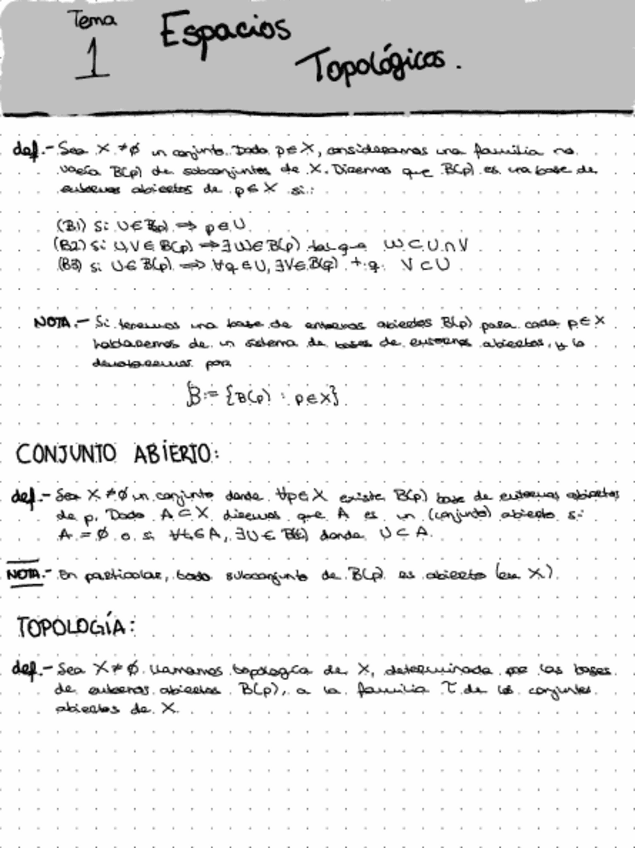 Tema
1
Espacios
Topológicos.
def.- Sea X ≠ ∅ un conjunto. Dado p ∈ X, consideramos una familia no
vacía B(p) de subconjuntos de X. Diremos que B(p) es una base de
entornos abiertos de p ∈ X si:
(B1) Si U ∈ B(p) ⟹ p ∈ U.
(B2) Si U,V ∈ B(p) ⟹ ∃ W ∈ B(p) tal que W ⊂ U ∩ V
(B3) Si U ∈ B(p) ⟹ ∀q ∈ U, ∃V ∈ B(q) t.q. V ⊂ U
NOTA.- Si tenemos una base de entornos abiertos B(p) para cada p ∈ X
hablaremos de un sistema de bases de entornos abiertos, y lo
denotaremos por
B := {B(p) : p ∈ X}
CONJUNTO ABIERTO:
def.- Sea X ≠ ∅ un conjunto donde ∀p ∈ X existe B(p) base de entornos abiertos
de p. Dado A ⊂ X diremos que A es un (conjunto) abierto si
A = ∅ o si ∀t ∈ A, ∃U ∈ B(t) donde U ⊂ A.
NOTA.- En particular, todo subconjunto de B(p) es abierto (en X).
TOPOLOGÍA:
def.- Sea X ≠ ∅. Llamamos topología de X, determinada por las bases
de entornos abiertos B(p), a la familia τ de los conjuntos
abiertos de X.